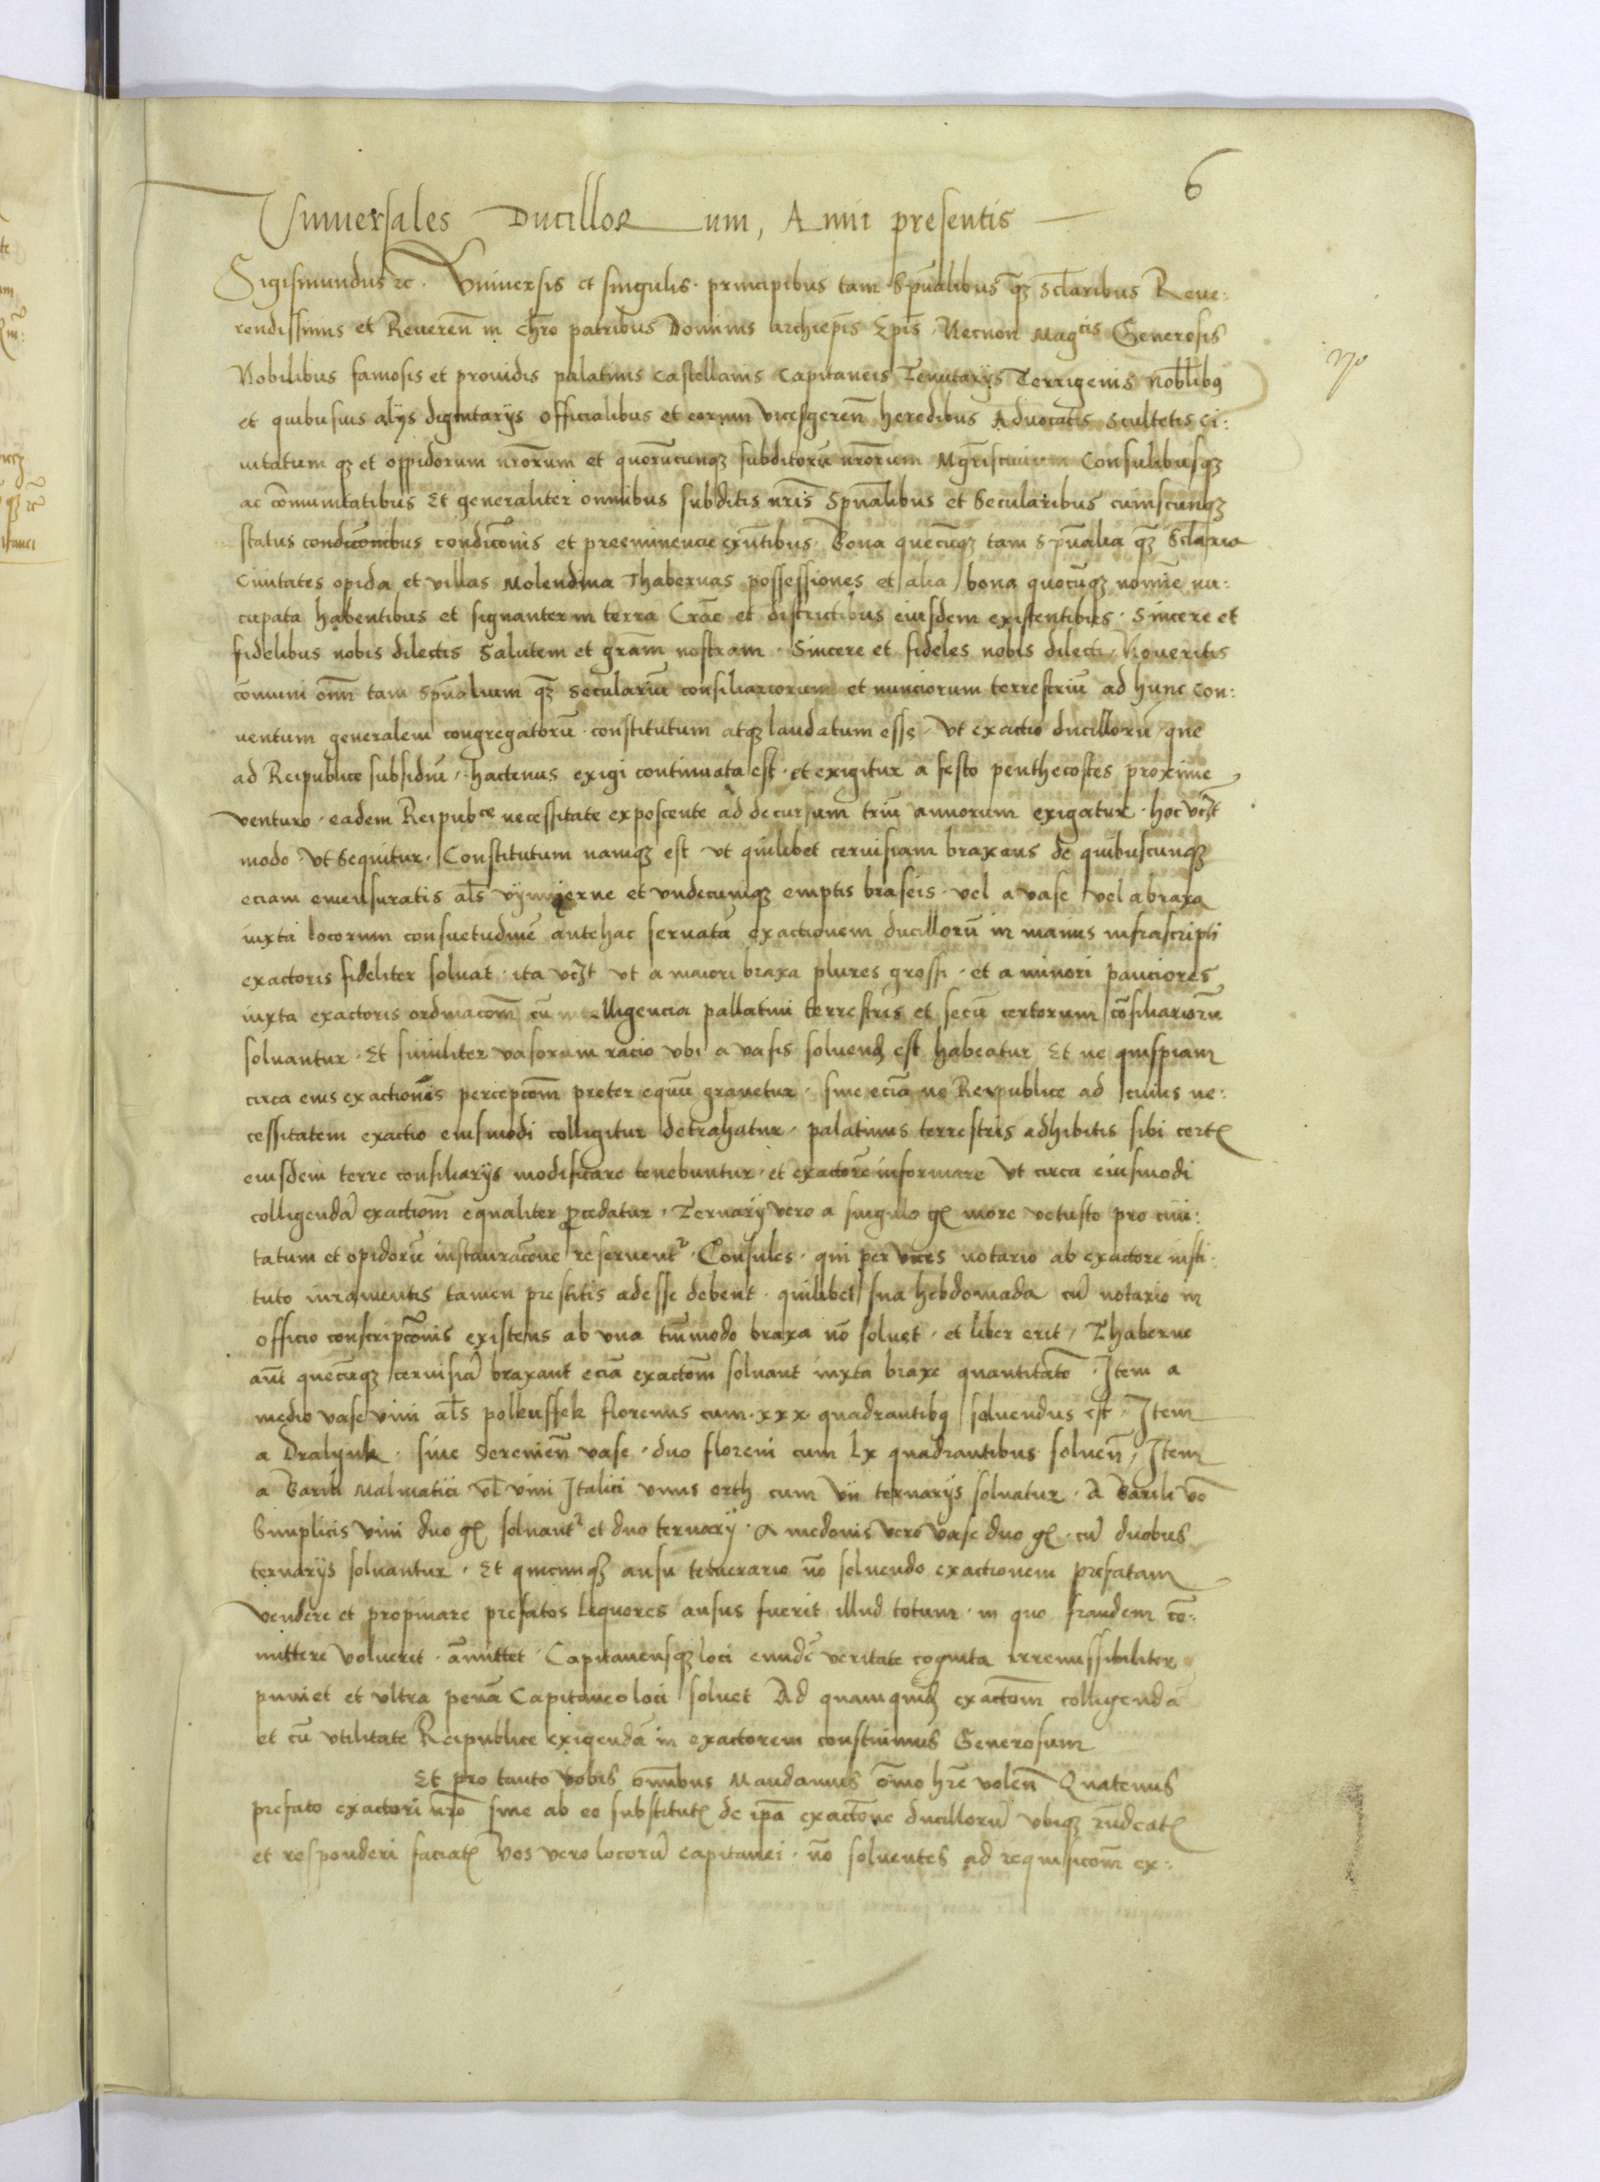 6
Universales Ducillorum, Anni presentis
Sigismundus etc. Vniuersis et singulis principibus tam Spualibus qz Sclaribus Reue:
rendissimis et Reueren in Chro patribus Dominis archiepis Epis Necnon Magcis Generosis
Nobilibus famosis et prouidis palatinis Castellanis Capitaneis Tenutarijs Terrigenis Noblibus
et quibusuis alijs dignitarijs Officialibus et eorum vicesgeren heredibus Aduocatis Scultetis Ci:
uitatum qz et oppidorum nrorum et quorucunqz subditoru nrorum Consulibusqz
ac comunitatibus Et generaliter omnibus subditis nris Spualibus et Secularibus cuiuscunqz
status condicois et preeminencie exntibus Bona quecunqz tam Spualia qz Sclaria
Ciuitates opida et villas Molendina Thabernas possessiones et alia bona quocunqz nomine nu:
cupata habentibus et signanter in terra Crac et districtibus eiusdem existentibus Sincere et
fidelibus nobis dilectis Salutem et gram nostram Sincere et fideles nobis dilecti Noueritis
comuni omn tam Spualium qz Secularium consiliariorum et nunciorum terrestrium ad hunc Con:
uentum generalem congregatoru constitutum atqz laudatum esse Vt exactio ducilloru que
ad Reipublice subsidiu hactenus exigi continuata est et exigitur a festo penthecostes proxime
venturo eadem Reipubce necessitate exposcente ad decursum triu annorum exigatur hoc vczt
modo Vt Sequitur Constitutum namqz est vt quilibet ceruisiam braxans de quibuscunqz
eciam emensuratis als et vndecumqz emptis braseis vel a vase vel a braxa
iuxta locorum consuetudine antehac seruata exactionem ducilloru in manus infrascripti
exactoris fideliter soluat ita vczt vt a maiori braxa plures grossi et a minori pauciores
iuxta exactoris ordinacom cu intelligencia pallatini terrestris et secu certorum cosiliarioru
soluantur Et similiter vasorum racio vbi a vasis soluend est habeatur Et ne quispiam
circa eius exactionis percepcom preter equu grauetur siue ecia ne Reipublice ad cuius ne:
cessitatem exactio eiusmodi colligitur detrahatur palatinus terrestris adhibitis sibi certis
eiusdem terre consiliarijs modificare tenebuntur et exactore informare Vt circa eiusmodi
colligenda exactiom equaliter pcedatur Ternarij vero a singulo gs more vetusto pro ciui:
tatum et opidoru instauracoe reseruentur Consules qui per vices notario ab exactore insti
tuto iuramentis tamen prestitis adesse debent quilibet sua hebdomada cu notario in
officio conscripcois existens ab vna tmmodo braxa no soluet et liber erit Thaberne
aut quecuqz ceruisia braxant ecia exactom soluant iuxta braxe quantitate Item a
medio vase vini als polkuffek florenus cum xxx quadrantibus soluendus est Item
a Dralynk siue Seremien vase duo floreni cum lx quadrantibus soluen Item
a Barili Malmatici vl vini Italici vnus orth cum vii ternarijs soluatur A Barili vo
Simplicis vini duo gs soluantur et duo ternarij A medonis vero vase duo gs cu duobus
ternarijs soluantur Et quicunqz ausu temerario no soluendo exactionem prefatam
vendere et propinare prefatos liquores ausus fuerit illud totum in quo fraudem co:
mittere voluerit amittet Capitaneusqz loci eunde veritate cognita irremissibiliter
puniet et vltra pena Capitaneo loci soluet Ad quamquid exactom colligenda
et cu vtilitate Reipublice exigenda in exactorem constituimus Generosum
Et pro tanto vobis omnibus Mandamus omo hre volen Quatenus
prefato exactori nro siue ab eo substitutis de ipa exactione ducilloru vbiqz rndeatis
et responderi faciatis Vos vero locoru capitanei no soluentes ad requisicom ex: